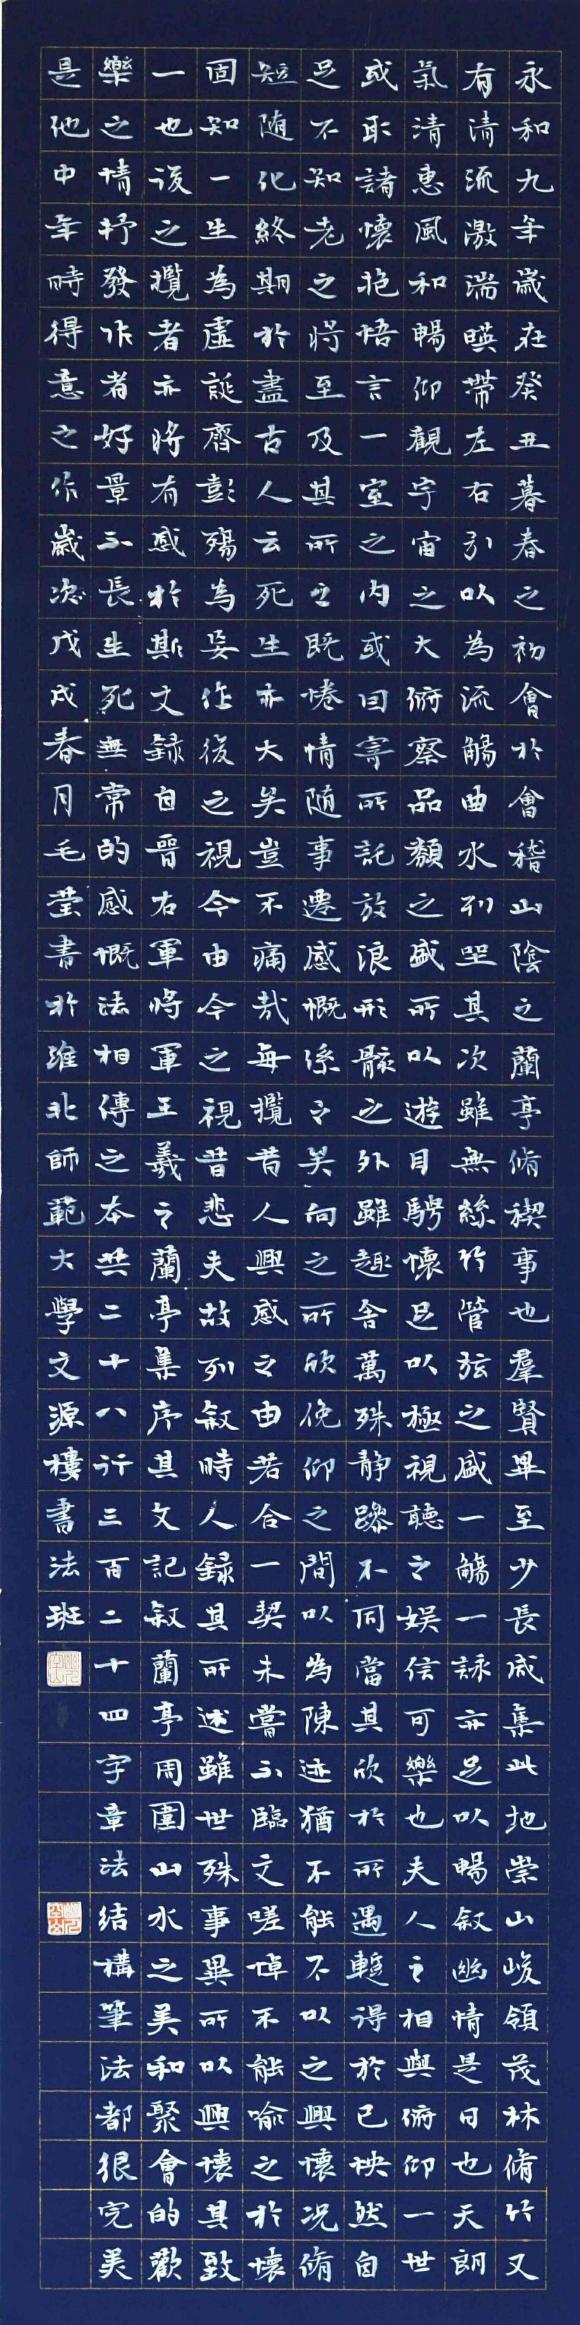 永和九年歲在癸丑暮春之初會於會稽山陰之蘭亭脩稧事也羣賢畢至少長咸集此地崇山峻領茂林脩竹又
有清流激湍暎帶左右引以為流觴曲水列坐其次雖無絲竹管弦之盛一觴一詠亦足以暢叙幽情是日也天朗
氣清惠風和暢仰觀宇宙之大俯察品類之盛所以遊目騁懷足以極視聽之娛信可樂也夫人之相與俯仰一世
或取諸懷抱悟言一室之內或因寄所託放浪形骸之外雖趣舍萬殊静躁不同當其欣於所遇蹔得於己怏然自
足不知老之將至及其所之既惓情随事遷感慨係之矣向之所欣俛仰之間以為陳迹猶不能不以之興懷況脩
短随化終期於盡古人云死生亦大矣豈不痛哉每攬昔人興感之由若合一契未嘗不臨文嗟悼不能喻之於懷
固知一生為虛誕齊彭殤為妄作後之視今由今之視昔悲夫故列叙時人録其所述雖世殊事異所以興懷其致
一也後之攬者亦將有感於斯文録自晉右軍將軍王羲之蘭亭集序其文記叙蘭亭周圍山水之美和聚會的歡
樂之情抒發作者好景不長生死無常的感慨法相傳之本共二十八行三百二十四字章法結構筆法都很完美
是他中年時得意之作歲次戊戌春月毛莹書於淮北師範大學文源樓書法班